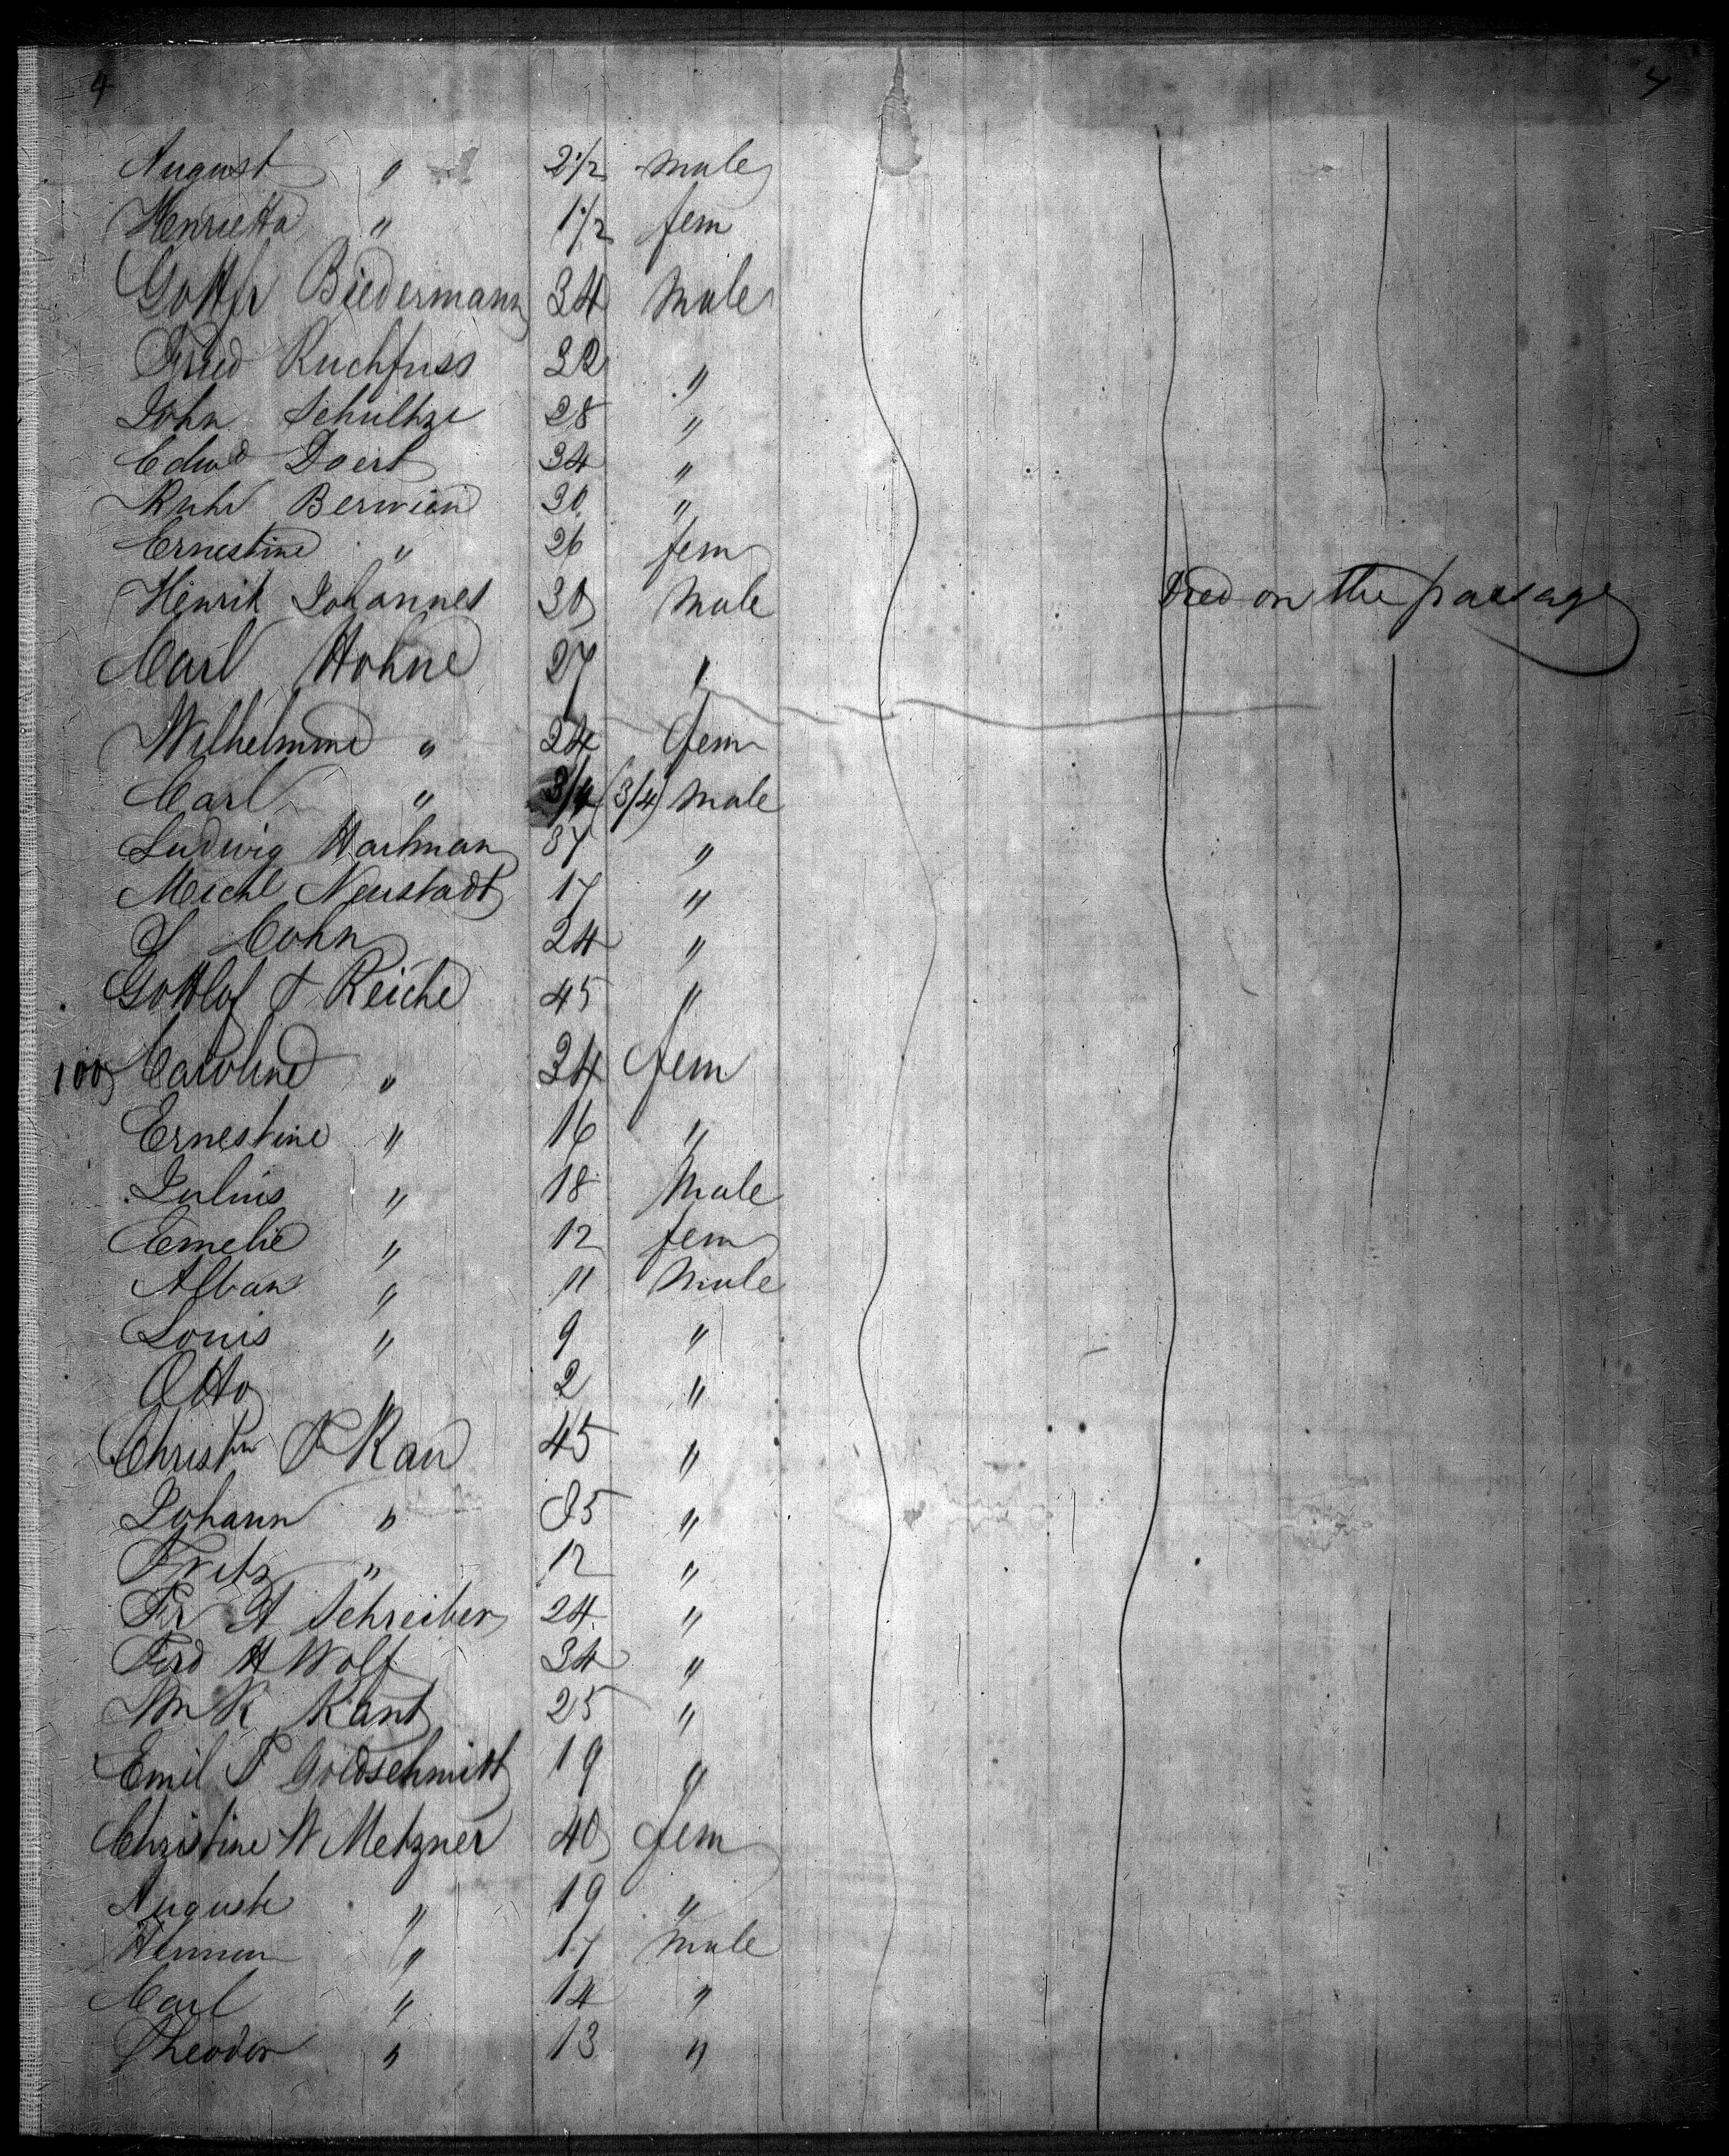 4
August " 2 1/2 male
Henrietta " 1 1/2 fem
Gottfr Biedermann 34 Male
Fried Ruchfuss 32 "
John Schultze 28 "
Edwd Doert 34 "
Berwien 30 "
Ernestine " 26 fem
Henrik Johannes 30 Male Died on the passage
Carl Hohne 27 "
Wilhelmine " 24 fem
Carl " 3/4 (3/4) Male
Ludwig Hartman 37 "
Michl Neustadt 17 "
S Cohn 24 "
Gottlof F Reiche 45 "
100 Caroline " 34 fem
Ernestine " 16 "
Julius " 18 Male
Emelie " 12 fem
Alban " 11 Male
Louis " 9 "
Otto " 2 "
Christn F Rau 45 "
Johann " 35 "
Fritz " 12 "
Fr A Schreiber 24 "
Ferd H Wolf 34 "
Wm K Kant 25 "
Emil F Goldschmitt 19 "
Christine W Metzner 40 fem
Auguste " 19 "
Herman " 17 Male
Carl " 14 "
Theodor " 13 "